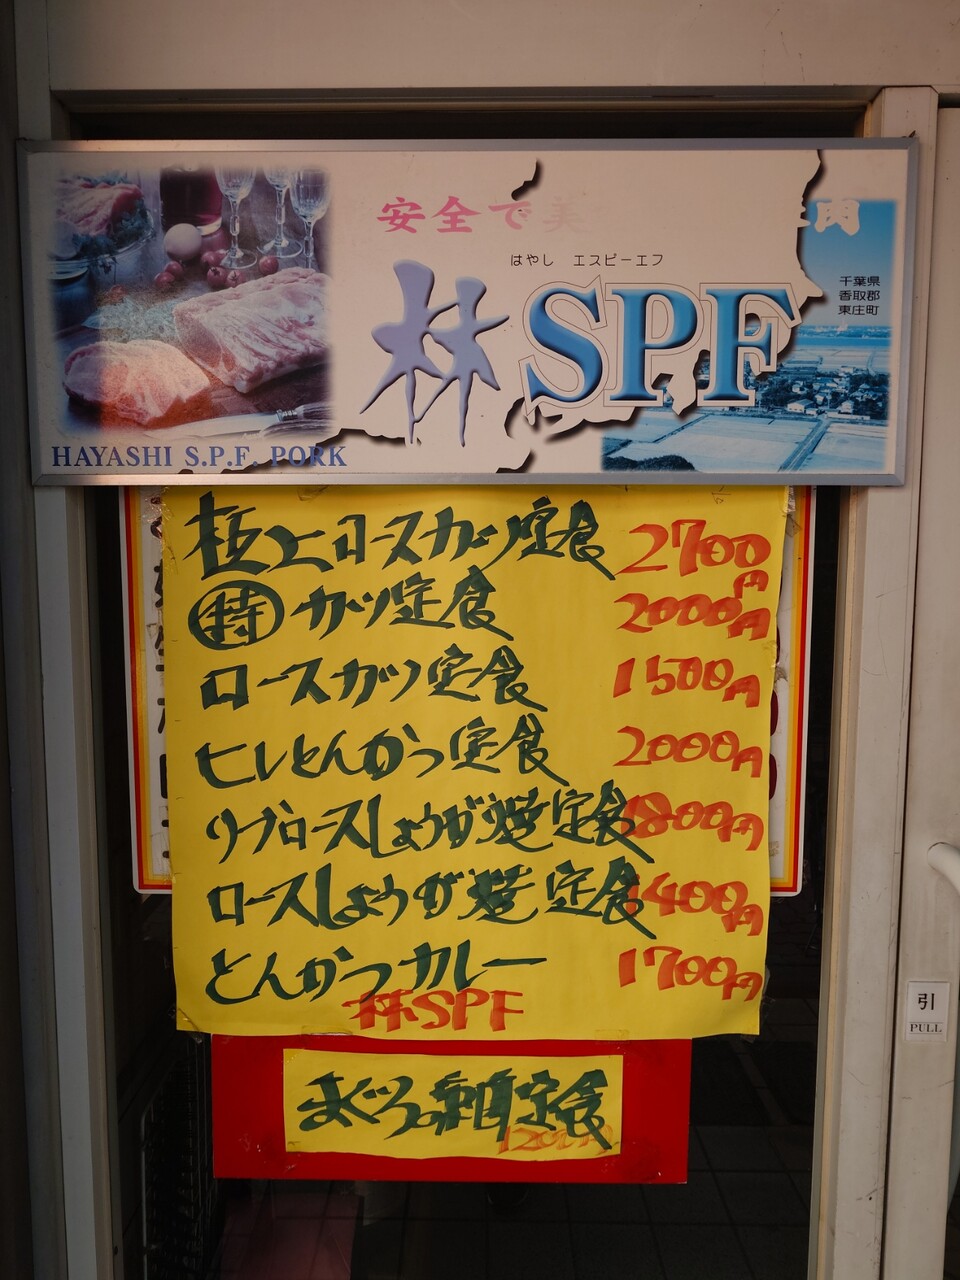 安全で美 肉
はやし エスピーエフ
林SPF
千葉県
香取郡
東庄町
HAYASHI S.P.F. PORK
極上ロースカツ定食 2700円
特 カツ定食 2000円
ロースカツ定食 1500円
ヒレとんかつ定食 2000円
リブロースしょうが焼定食 1800円
ロースしょうが焼定食 1400円
とんかつカレー 1700円
林SPF
まぐろ刺身定食
1200円
引
PULL